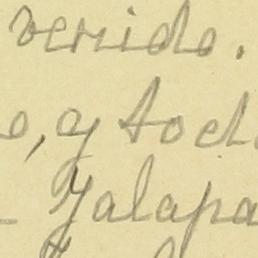 venido.
o, y tod
Jalapa